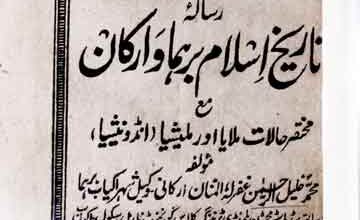 رسالہ
تاریخ اسلام برہما و ارکان
مع
مختصر حالات ملایا اور ملیشیا (انڈونیشیا)
مؤلفہ
محمد خلیل الرحمٰن غفرلہ المنان ارکانی وکیل شہر اکیاب برہما